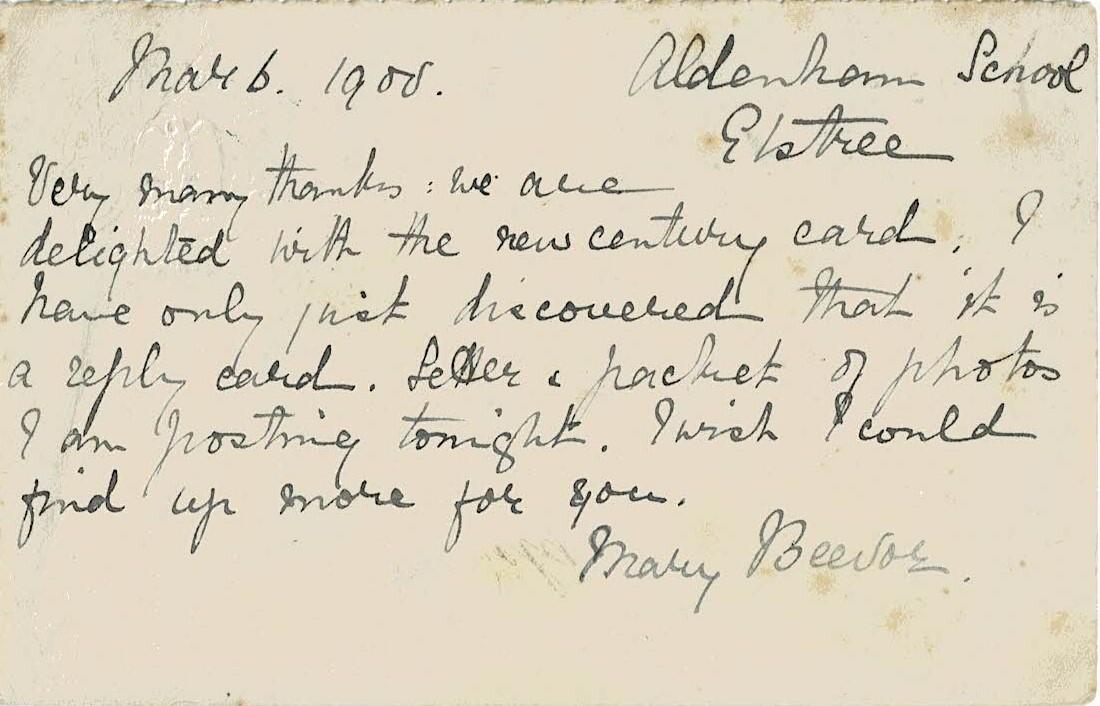 Mar 6. 1900.
Aldenham School
Elstree
Very many thanks: we are
delighted with the new century card. I
have only just discovered that it is
a reply card. Letter & packet of photos
I am posting tonight. I wish I could
find up more for you.
Mary Beevor.